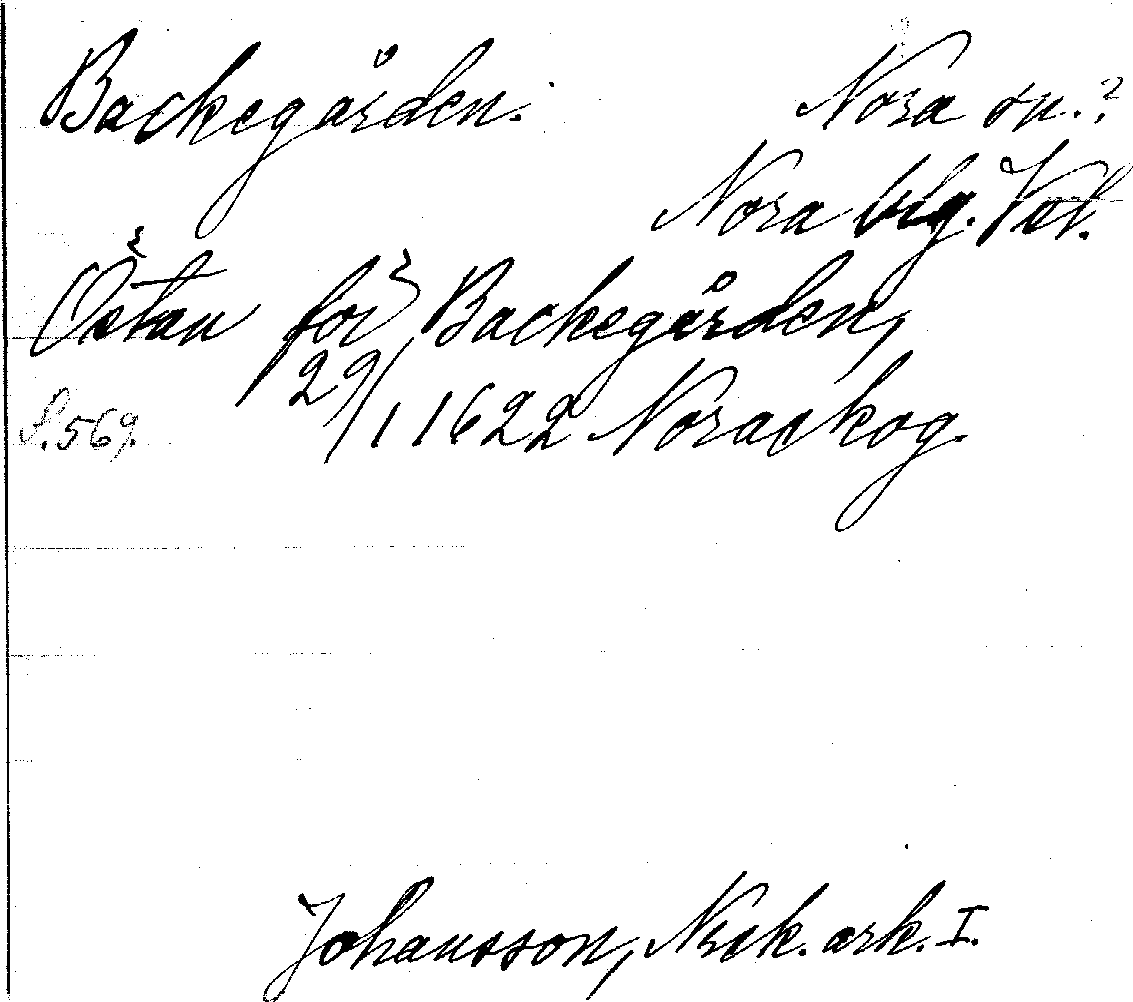 Backegården.
Nora sn.?
Nora blg. Vstl.
Östan för Backegården,
29/1 1622 Noraskog.
S. 569.
Johansson, Nrsk. ark. I.